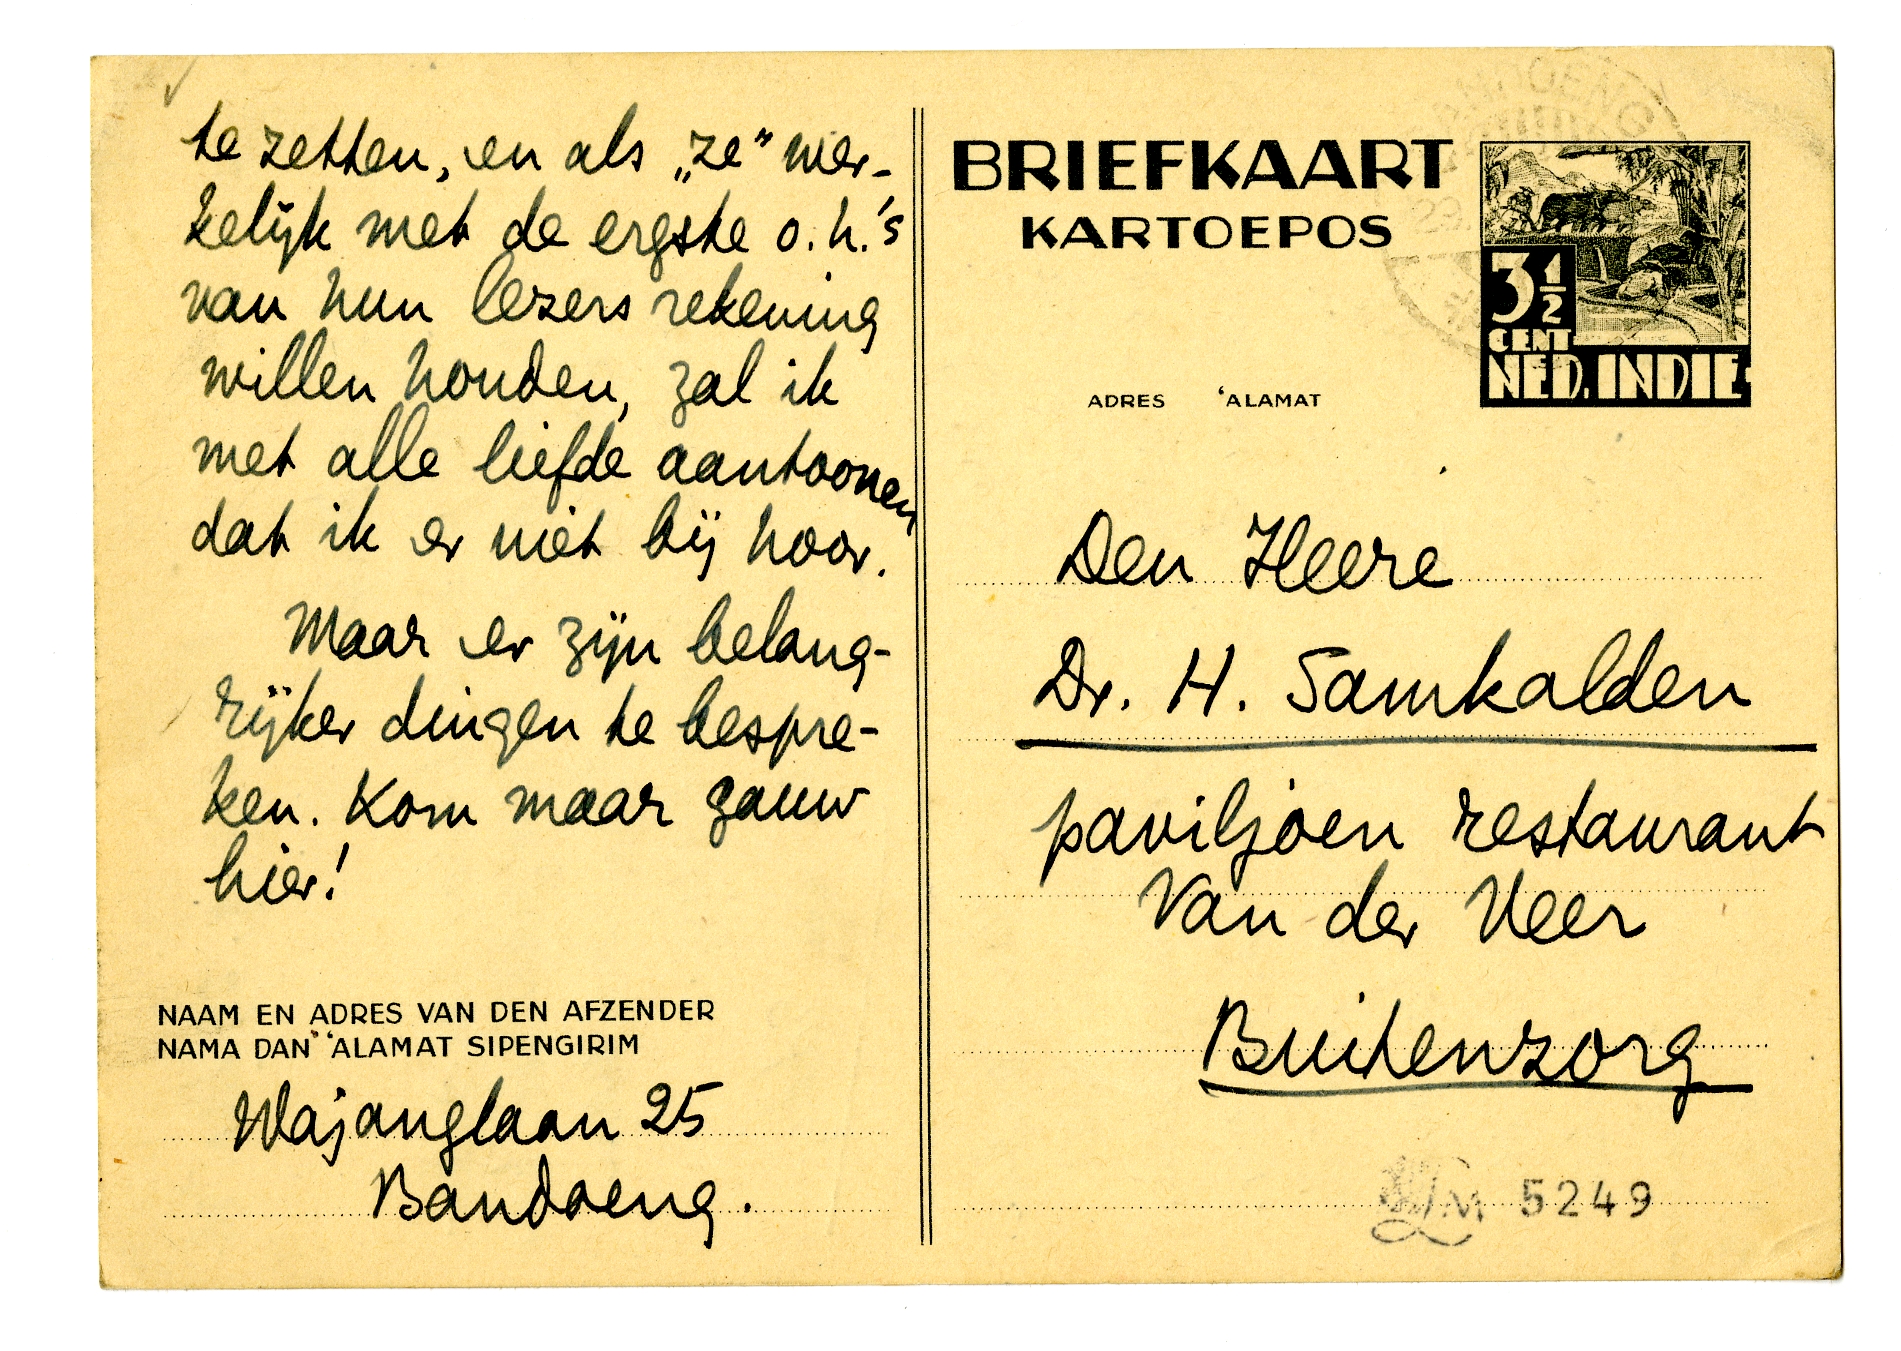 te zetten, en als „ze” wer-
kelijk met de ergste o.h.'s
van hun lezers rekening
willen houden, zal ik
met alle liefde aantoonen
dat ik er niet bij hoor.
Maar er zijn belang-
rijker dingen te bespre-
ken. Kom maar gauw
hier!
NAAM EN ADRES VAN DEN AFZENDER
NAMA DAN ‘ALAMAT SIPENGIRIM
Wajanglaan 25
Bandoeng.
BRIEFKAART
KARTOEPOS
3½
CENT
NED. INDIE
ADRES ‘ALAMAT
Den Heere
Dr. H. Samkalden
paviljoen restaurant
Van der Veer
Buitenzorg
5249